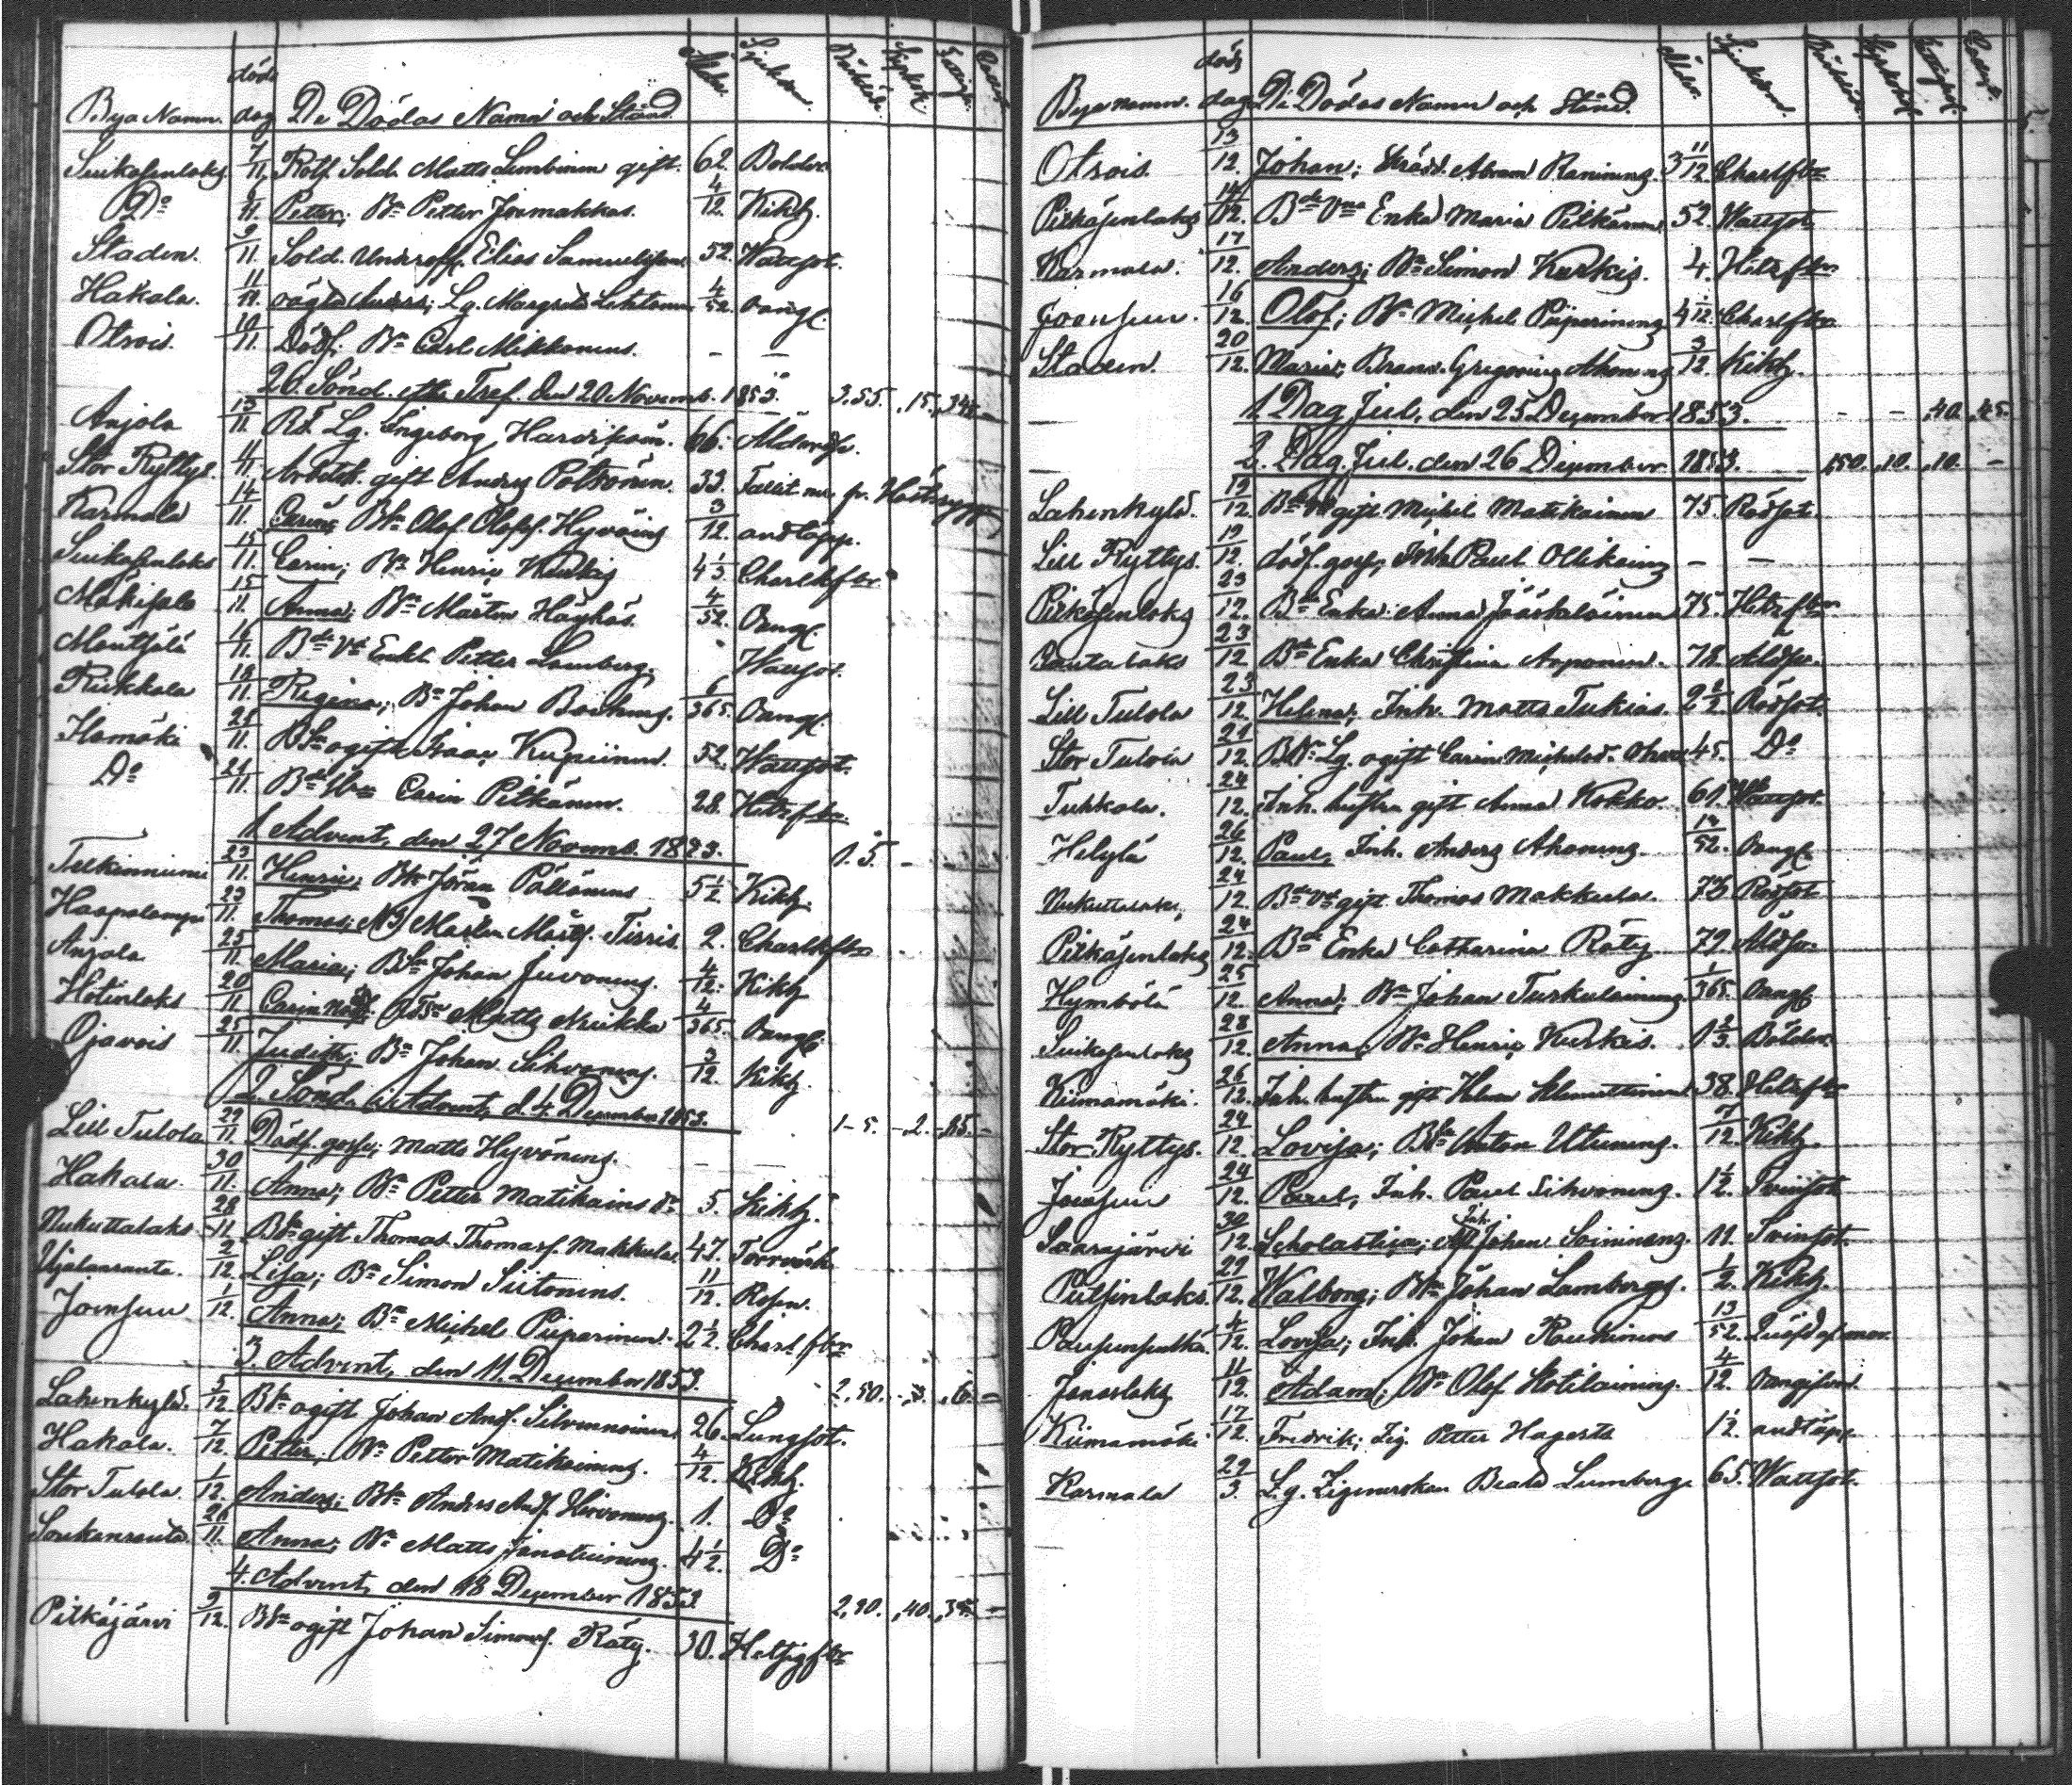 Bya Namn. död dag De Dödas Namn och Stånd Ålder. Sjukdom.
Suikasenlaks 7/11. Rotf. Sold. Matts Limbinen gift. 62. Bolder
Do 6/11. Petter; Bn Petter Jormakkas. 4/12. Kikh.
Staden. 9/11. Sold. Underoff. Elias Samuelsson 52. Wattsot.
Hakala. 11/11. oägta Anders; Lg. Margreta Lehtonen 4/52. oangf.
Otsois. 10/11. Dödf. Bn Carl Mikkonens. – –
26. Sönd. efter Tref. den 20 Novemb. 1853. 3.55. ,15.
Anjola 13/11. Rt Lg. Ingeborg 66. Ålderdr.
Stor Ryttys. 11/11. Arbetsk. gift Anders Pölkönen. 33. Fallit ner fr. Hästrygg
Karmala 14/11. Carin; Bn Olof Olofss. Hyvöins 3/12. andtäpp.
Suikasenlaks 15/11. Carin; Bn Henric Kurkis 4 1/3. Charlksfbr
Mäkisalo 15/11. Anna; Bn Mårten Häyhäs. 4/52. Oangf.
Monttälä 16/11. Bde Vd Enkl. Petter Lamberg. Wattsot.
Riekkala 18/11. Regina; Bn Johan 6/365. Oangf.
Hamäki 21/11. Bn ogift Isaac Kupiinen. 52. Wattsot.
Do 21/11. Bde Carin Pitkänen. 28. Hetsfbr
1. Advent, den 27 Novemb. 1853. 1.5. –
Tulkinniemi 22/11. Henric; Bn Jöran Pöllönens 5 1/2 Kikh.
Haapalampi 23/11. Thomas; Mårten Mårtss. Tirris. 2. Charlksfbr
Anjola 25/11. Maria; Bn Johan Juvonens. 4/12. Kikh
Hotinlaks 20/11. Carin Matts Mukka 4/365. Oangf.
Ojavois 25/11. Judith; Bn Johan Sihvonens. 3/12. Kikh.
2. Sönd. i Advent, d. 4 December 1853. 1–5. –2.
Lill Tulola 29/11. Dödf. gosse; Matts Hyvönens. – –
Hakala. 30/11. Anna; Bn Petter Matikains dr 5. Kikh.
Nukuttalaks 28/11. Bn gift Thomas Thomass. Makkula 47. Torrvärk
Ujalanranta. 2/12. Lisa; Bn Simon Siitonens. 11/12. Rosen.
Joensuu 1/12. Anna; Bn Michel Piiparinen. 2 1/2 Charl fbr
3. Advent, den 11. December 1853. 2,50.
Lahenkylä. 5/12. Bn ogift Johan Ands. Silvennoinen 26. Lungsot.
Hakala. 7/12. Petter; Bn Petter Matikainens. 4/12. Kikh.
Stor Tulola. 1/12. Anders; Bn Anders Ands. Hirvonens. 1. Do
Soukanranta. 26/11. Anna; Bn Matts 4 1/2. Do
4. Advent, den 18 December 1853 2,90. ,40.
Pitkäjärvi 9/12. Bn ogift Johan Simons. Räty. 30. Hetsigfbr
Bya namn. död dag De Dödas Namn och Stånd. Ålder. Sjukdom.
Otsois. 13/12. Johan; Skrädd. Abram Raninens. 3 11/12 Charlfbr
Pitkäsenlaks 14/12. Bde Enka Maria Pitkänen 52. Wattsot
Karmala. 17/12. Anders; Bn Simon Kurkis. 4. Hetsfbr
Joensuu. 16/12. Olof; Bn Michel Piiparinens 4 1/12. Charlfbr
Staden. 20/12. Maria; Gregorius Ahonens 3/12. Kikh.
1. Dag Jul, den 25 December 1853. – – ,40. ,45.
2. Dag Jul. den 26 December 1853. ,50. ,10. ,10. –
Lahenkylä. 19/12. gift Michel Matikainen 75. Rödsot.
Lill Ryttys. 19/12. dödf. gosse; Inh. Paul Ollikains – –
Pitkäsenlaks 23/12. Bde Enka Anna Jääskeläinen 75. Hetsfbr
Rautalaks 23/12 Bde Enka Christina 78. Åldr.
Lill Tulola 23/12. Helena; Inh. Matts Tukias. 2 1/2 Rödsot.
Stor Tulola 21/12 Bn Lg. ogift Carin Michelsd. 45. Do
Tuhkala. 24/12. Inh. hustru gift Anna Kokko. 61. Wattsot.
Helylä 26/12. Paul; Inh. Anders Ahonens. 13/52. Oangf
Nukuttalaks, 24/12. Bde Vd gift Thomas Makkula. 73 Rödsot
Pitkäsenlaks 24/12. Bde Enka Catharina Räty 79. Åldr.
Hymbölä 25/12. Anna; Bn Johan Turkulainens 1/365. Oangf
Suikasenlaks 28/12. Anna; Bn Henric Kurkis. 1 2/3. Bölder.
Kiimamäki. 26/12. Inh. hustru gift Helena Klemettinen 38. Hetsfbr
Stor Ryttys. 24/12. Lovisa; Bn Anton Utunens. 7/12. Kikh
Joensuu 24/12. Paul; Inh. Paul Sihvonens. 1 1/2. Tvinsot
Saarajärvi 30/12. Scholastica; Inh. Johan Soininens. 11. Tvinsot.
Putsinlaks. 29/12. Walborg; Bn Johan Lambergs. 1/2. Kikh.
4/12. Lovisa; Inh. Johan Raukinens 13/52.
Janaslaks 11/12. Adam; Bn Olof Hotilainens. 4/12. oangifven
Kiimamäki 17/12. Fredrik; Zig. Petter Hagerts 1 1/2. andtäpp
Karmala 29/3. Lg. Zigenerskan Beata Lumberg. 65. Wattsot.